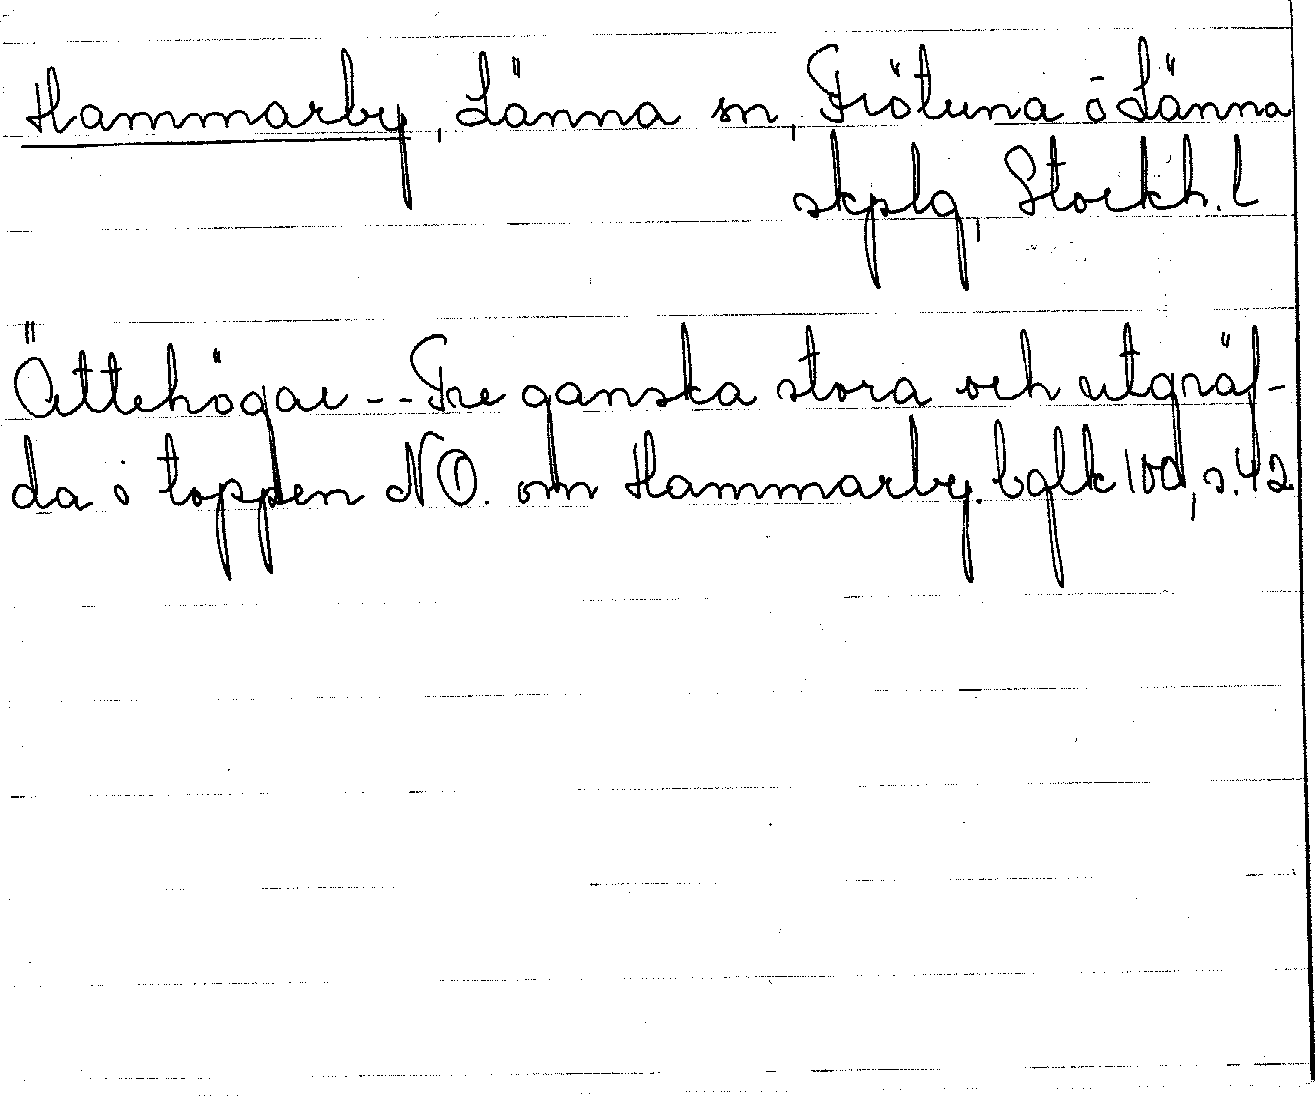 Hammarby, Länna sn, Frötuna ō Länna
skplg, Stockh. l
Ättehögar -- Tre ganska stora och utgräf-
da i toppen NO. om Hammarby. bglk 100, s. 42